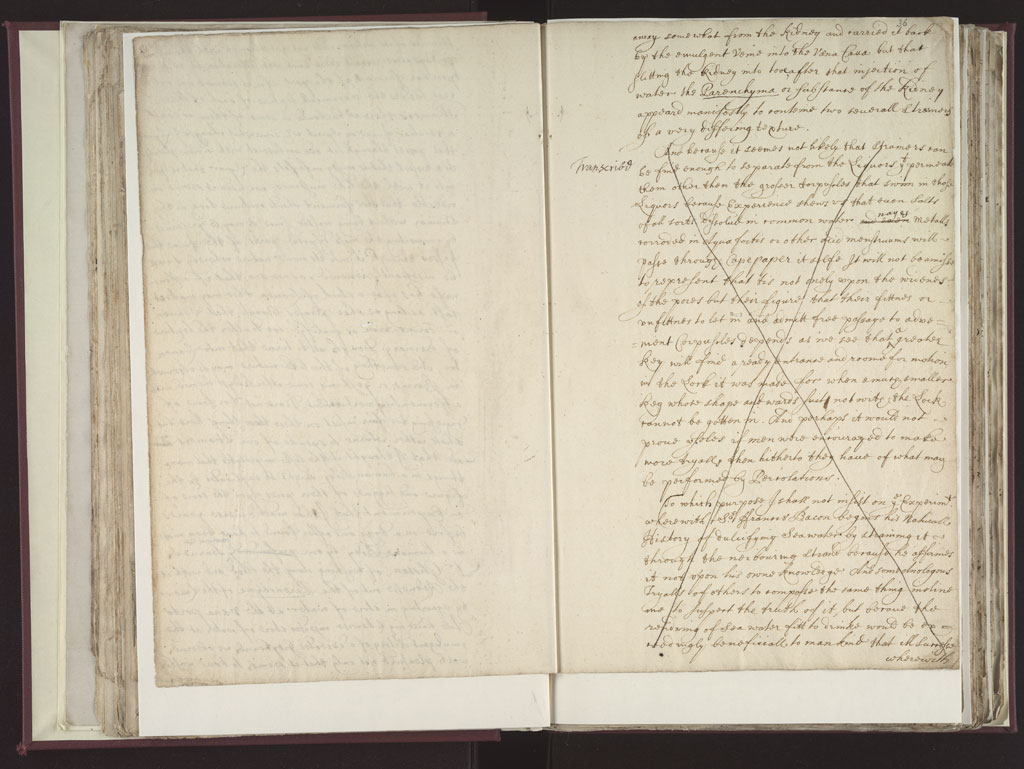 36
away somewhat from the Kidney and carried it back
by the emulgent Veine into the Vena Cava but that
slitting the Kidney into two after that injection of
water the Parenchyma or substance of the Kidney
appeard manifestly to conteine two severall Strainers
of a very differing texture.
And because it seemes not likely that Strainers can
Transcribd
be fine enough to separate from the Liquors yt permeat
them other then the grosser Corpuscles that swim in those
Liquors because Experience shews us that even Salts
of all sorts dissolud in common water nay Metalls
corroded in Aqua fortis or other acid menstruums will
passe through Capepaper it selfe It will not be amisse
to represent that tis not onely upon the widenes
of the pores but their figure that their fitnes or
unfittnes to let in and admitt free passage to adve=
=nient Corpuscles depends as we see that a greater
Key will find a ready entrance and roome for motion
in the Lock it was made for when a much smaller
Key whose shape and wards suit not with the Lock
cannot be gotten in. And perhaps it would not
prove useles if men were encouraged to make
more tryalls then hitherto they have of what may
be performed by Percolations.
To which purpose I shall not insist on ye Experimt
wherewith Sr Francis Bacon begins his Naturall
History of dulcifying Sea water by straining it
through the neibouring Strand because he affirmes
it not upon his owne knowledge And some Analogous
Tryalls of others to compasse the same thing incline
me to suspect the truth of it, but because the
rendring of Sea water fitt to drinke would be ex=
=ceedingly beneficiall to mankind that
wherewith